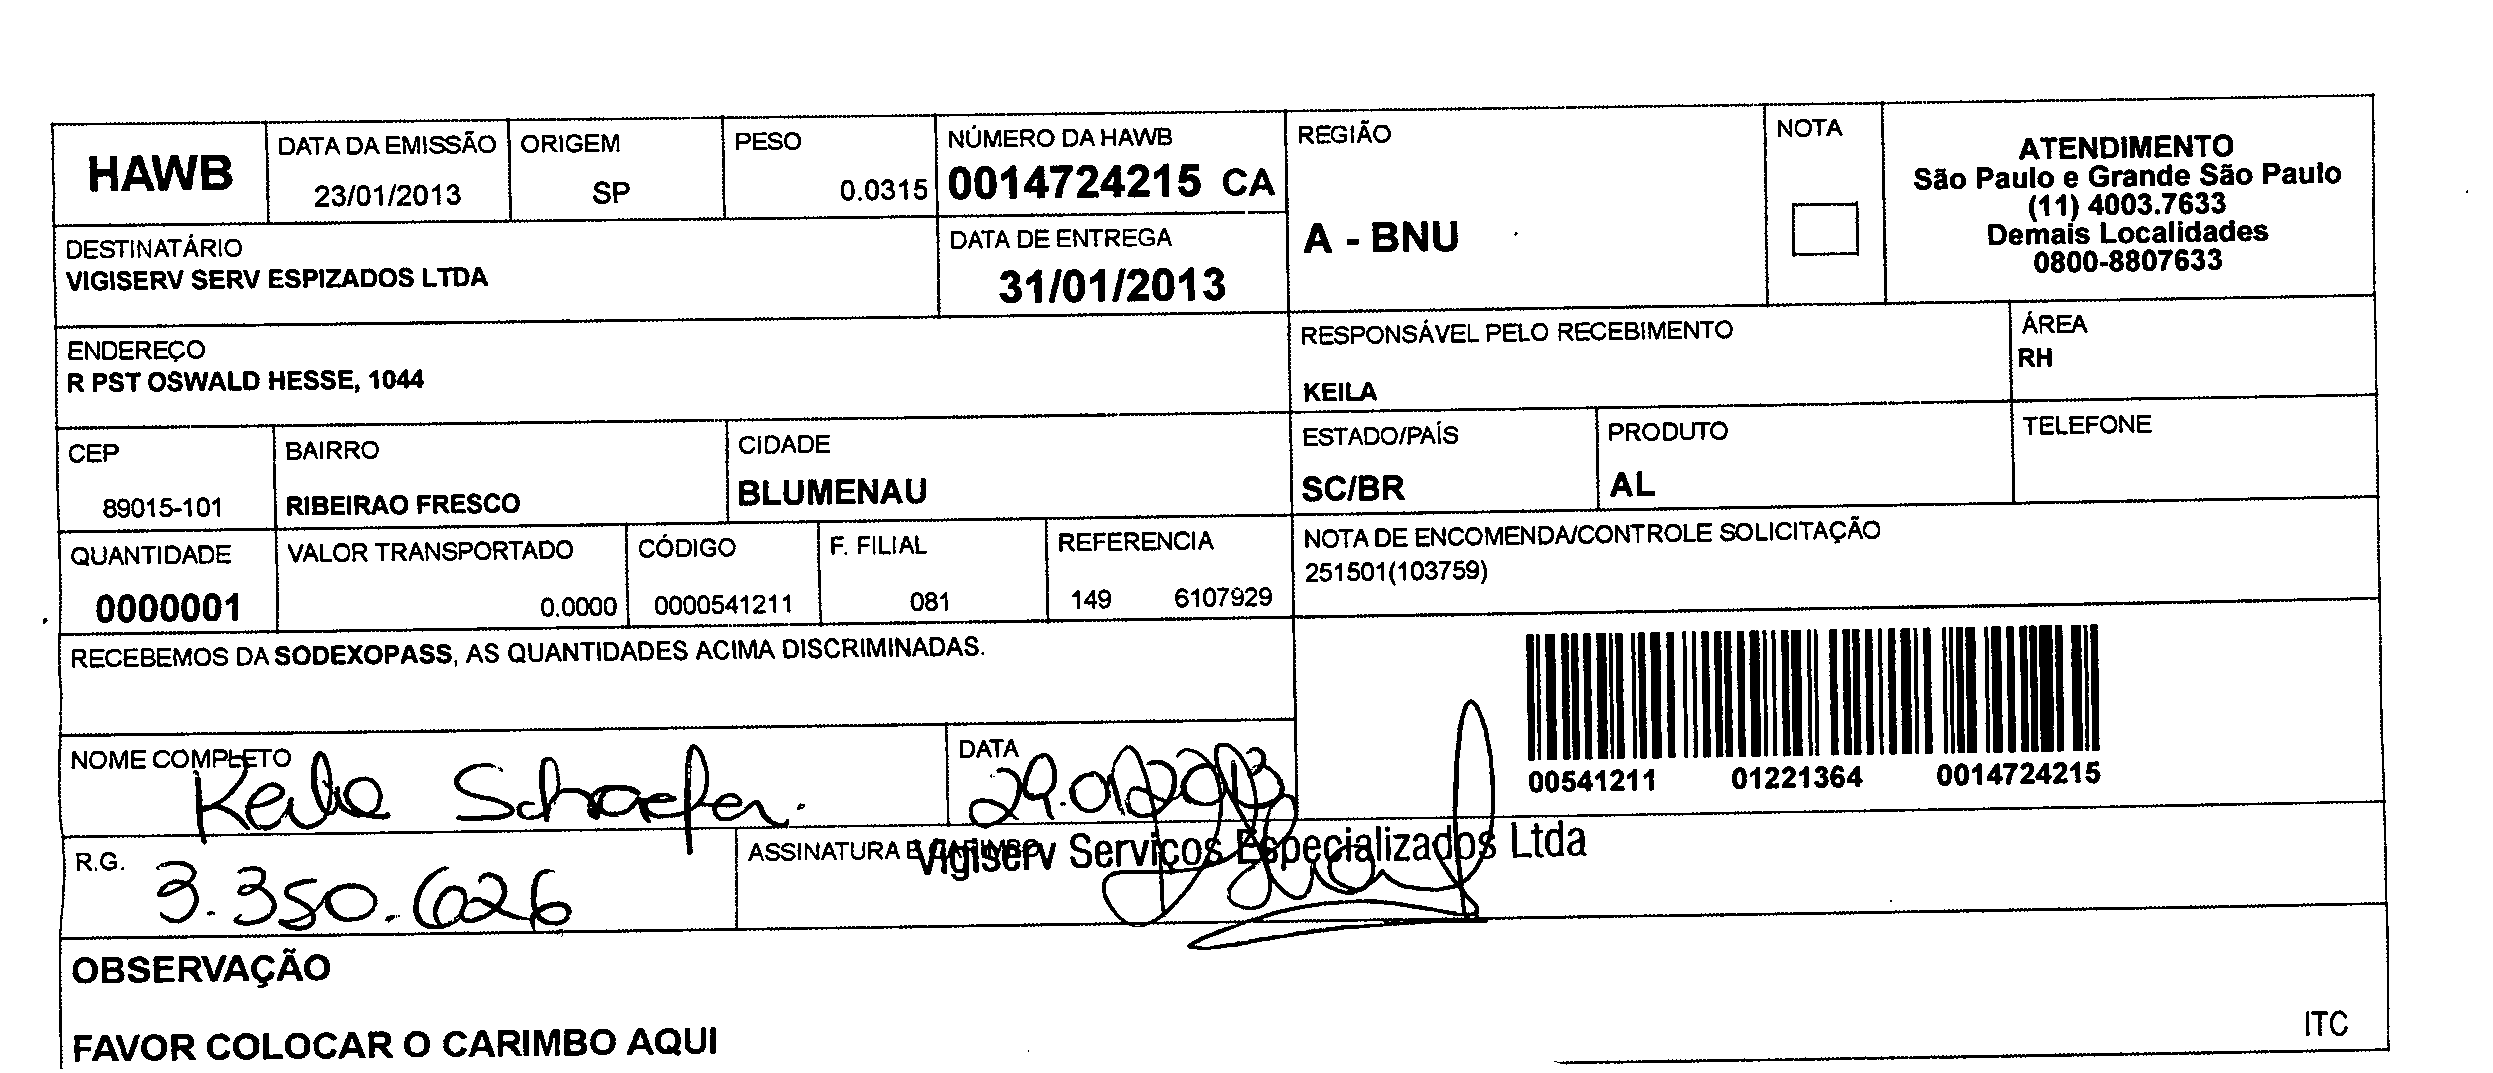 HAWB
DATA DA EMISSÃO
23/01/2013
ORIGEM
SP
PESO
0.0315
NÚMERO DA HAWB
0014724215 CA
REGIÃO
A - BNU
NOTA
ATENDIMENTO
São Paulo e Grande São Paulo
(11) 4003.7633
Demais Localidades
0800-8807633
DESTINATÁRIO
VIGISERV SERV ESPIZADOS LTDA
DATA DE ENTREGA
31/01/2013
ENDEREÇO
R PST OSWALD HESSE, 1044
RESPONSÁVEL PELO RECEBIMENTO
KEILA
ÁREA
RH
CEP
89015-101
BAIRRO
RIBEIRAO FRESCO
CIDADE
BLUMENAU
ESTADO/PAÍS
SC/BR
PRODUTO
AL
TELEFONE
QUANTIDADE
0000001
VALOR TRANSPORTADO
0.0000
CÓDIGO
0000541211
F. FILIAL
081
REFERENCIA
149 6107929
NOTA DE ENCOMENDA/CONTROLE SOLICITAÇÃO
251501(103759)
RECEBEMOS DA SODEXOPASS, AS QUANTIDADES ACIMA DISCRIMINADAS.
00541211 01221364 0014724215
NOME COMPLETO
Keila Schaefer.
DATA
29.01.2013
R.G.
3.350.626
ASSINATURA E CARIMBO
Vigiserv Serviços Especializados Ltda
OBSERVAÇÃO
FAVOR COLOCAR O CARIMBO AQUI
ITC